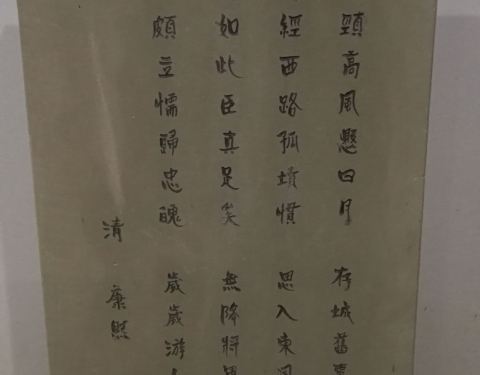 高風懸日月 存城舊
經西路孤墳慣 思入東
如此臣真足矣 無降將
頗立懦歸忠魄 歲歲游
清 康熙